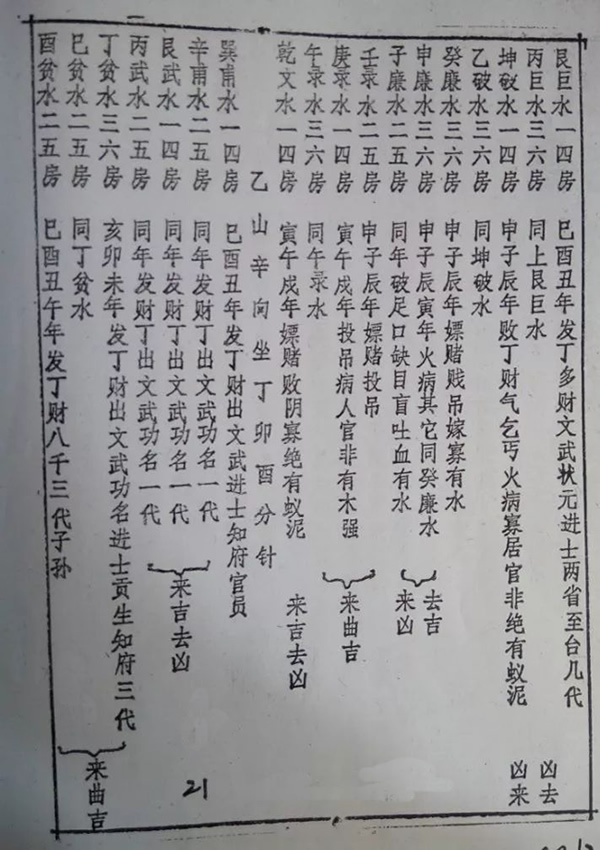 艮巨水一四房 巳酉丑年发丁多财文武状元进士两省至台几代
丙巨水三六房 同上艮巨水
凶去
坤破水一四房 申子辰年败丁财气乞丐火病寡居官非绝有蚁泥
凶来
乙破水三六房 同坤破水
癸廉水三六房 申子辰年嫖赌贱吊嫁寡有水
申廉水三六房 申子辰寅年火病其它同癸廉水
子廉水二五房 同年破足口缺目盲吐血有水
去吉
来凶
壬录水二五房 申子辰年嫖赌投吊
庚录水一四房 寅午戌年投吊病人官非有木强
来曲吉
午录水三六房 同午录水
乾文水一四房 寅午戌年嫖赌败阴寡绝有蚁泥 来吉去凶
乙山辛向坐丁卯酉分针
巽甫水一四房 巳酉丑年发丁财出文武进士知府官员
辛甫水二五房 同年发财丁出文武功名一代
艮武水一四房 同年发财丁出文武功名一代
丙武水二五房 同年发财丁出文武功名一代
来吉去凶
丁贫水三六房 亥卯未年发丁财出文武功名进士贡生知府三代
巳贫水二五房 同丁贫水
来曲吉
酉贫水二五房 巳酉丑午年发丁财八千三代子孙
21